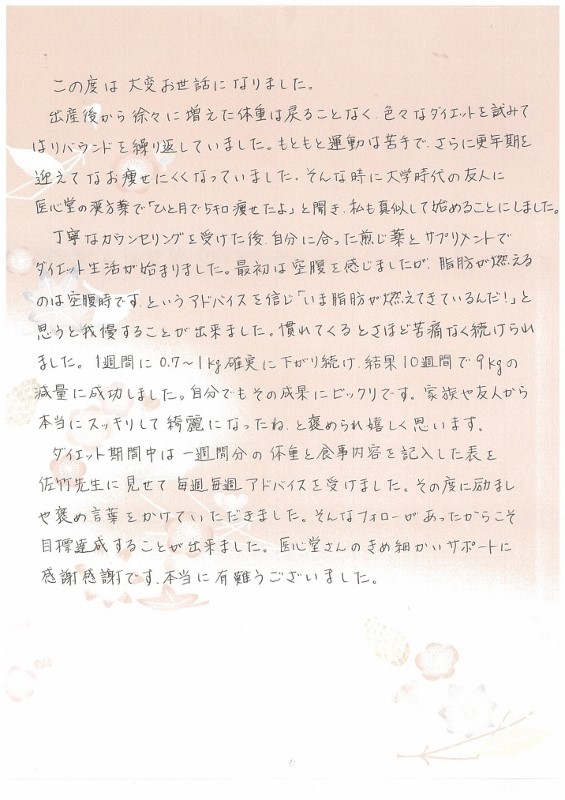 この度は大変お世話になりました。
出産後から徐々に増えた体重は戻ることなく、色々なダイエットを試みて
はリバウンドを繰り返していました。もともと運動は苦手で、さらに更年期を
迎えてなお痩せにくくなっていました。そんな時に大学時代の友人に
医心堂の漢方薬で「ひと月で5キロ痩せたよ」と聞き、私も真似して始めることにしました。
丁寧なカウンセリングを受けた後、自分に合った煎じ薬とサプリメントで
ダイエット生活が始まりました。最初は空腹を感じましたが、脂肪が燃える
のは空腹時です、というアドバイスを信じ「いま脂肪が燃えてきているんだ！」と
思うと我慢することが出来ました。慣れてくるとさほど苦痛なく続けられ
ました。1週間に0.7〜1kg確実に下がり続け、結果10週間で9kgの
減量に成功しました。自分でもその成果にビックリです。家族や友人から
本当にスッキリして綺麗になったね、と褒められ嬉しく思います。
ダイエット期間中は一週間分の体重と食事内容を記入した表を
佐竹先生に見せて毎週毎週アドバイスを受けました。その度に励まし
や褒め言葉をかけていただきました。そんなフォローがあったからこそ
目標達成することが出来ました。医心堂さんのきめ細かいサポートに
感謝感謝です、本当に有難うございました。